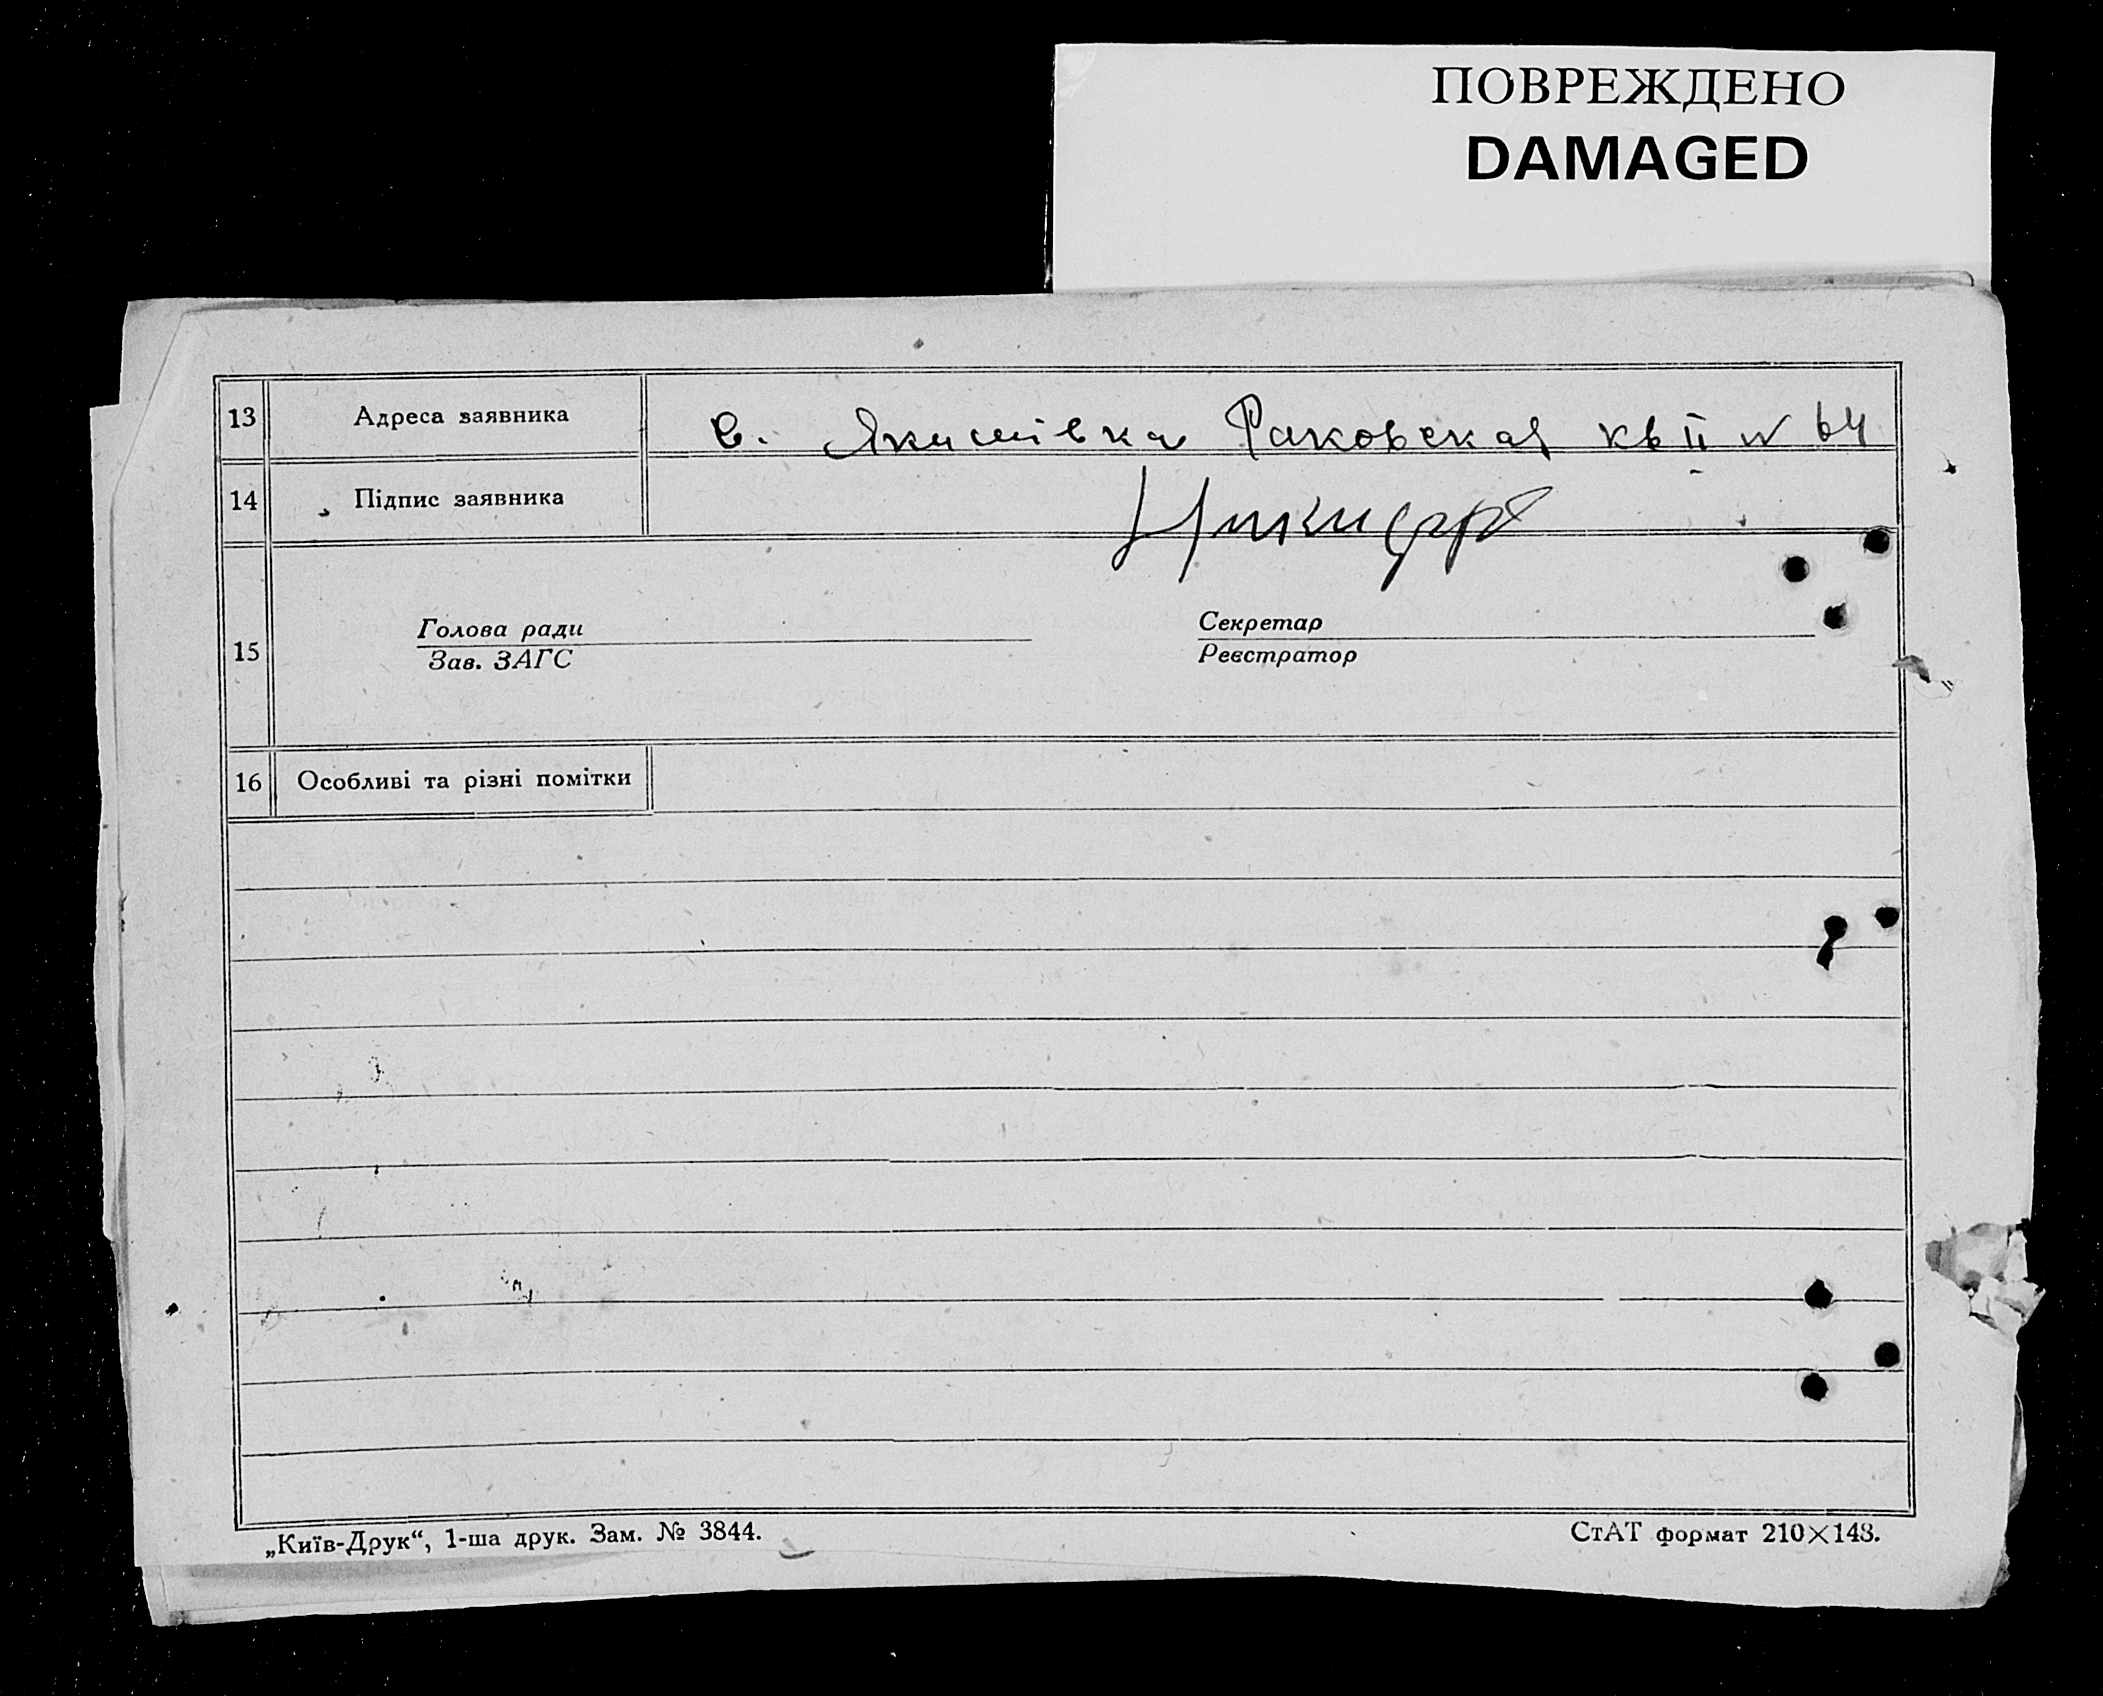 ПОВРЕЖДЕНО
DAMAGED
13 Адреса заявника с. Якимівка Раковская кв II № 64
14 Підпис заявника
15 Голова ради Секретар
Зав. ЗАГС Реєстратор
16 Особливі та різні помітки
„Київ-Друк“, 1-ша друк. Зам. № 3844. СтАТ формат 210×148.